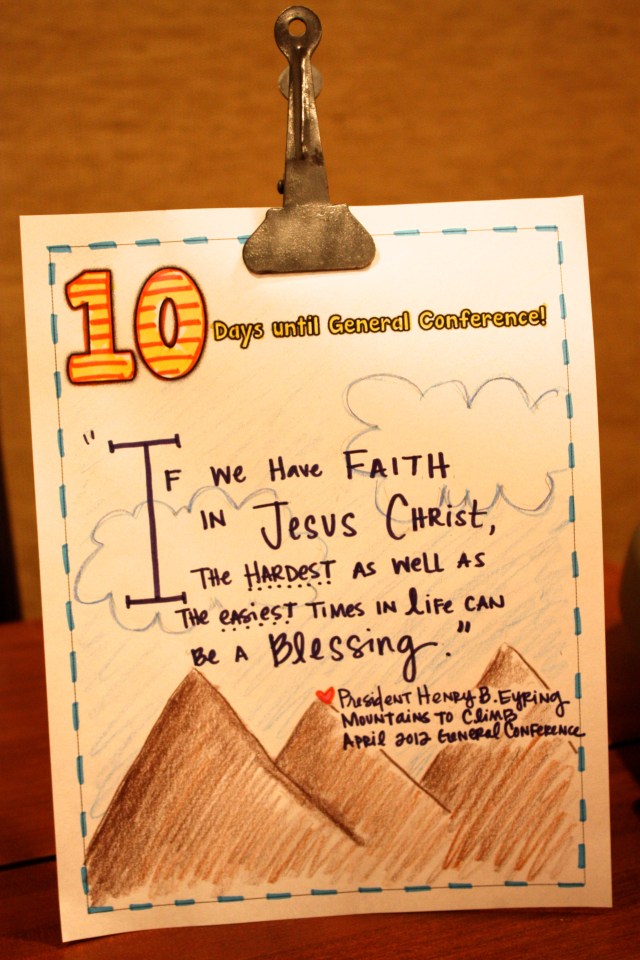 10 Days until General Conference!
"If we Have FAITH
IN JESUS CHRIST,
THE HARDEST AS WELL AS
THE EASIEST TIMES IN LIFE CAN
BE A Blessing."
President Henry B. Eyring
MOUNTAINS TO CLIMB
APRIL 2012 GENERAL CONFERENCE